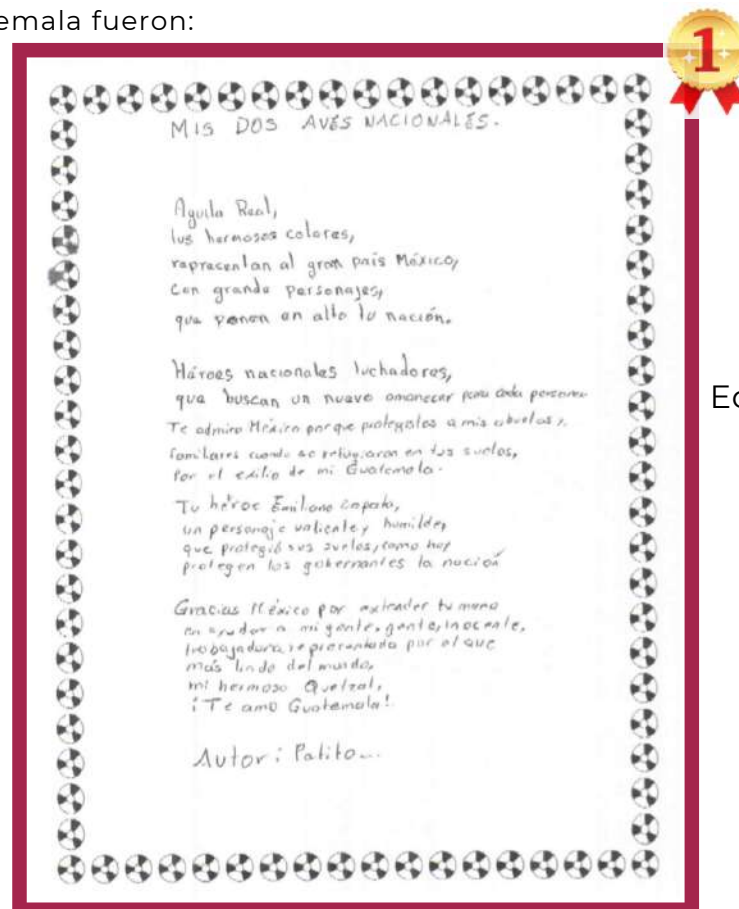 emala fueron:
1
MIS DOS AVES NACIONALES.
Aguila Real,
tus hermosos colores,
representan al gran país México,
con grande personajes,
que ponen en alto tu nación.
Héroes nacionales luchadores,
que buscan un nuevo amanecer para cada persona
Te admiro México porque protegistes a mis abuelos y
familiares cuando se refugiaron en tus suelos,
Por el exilio de mi Guatemala.
Tu héroe Emiliano Zapata,
un personaje valiente y humilde,
que protegió sus suelos, como hoy
protegen los gobernantes la nación
Gracias México por extender tu mano
en ayudar a mi gente, gente, inocente,
trabajadora, representada por el ave
más lindo del mundo,
mi hermoso Quetzal,
¡Te amo Guatemala!
Autor: Patito...
Ed